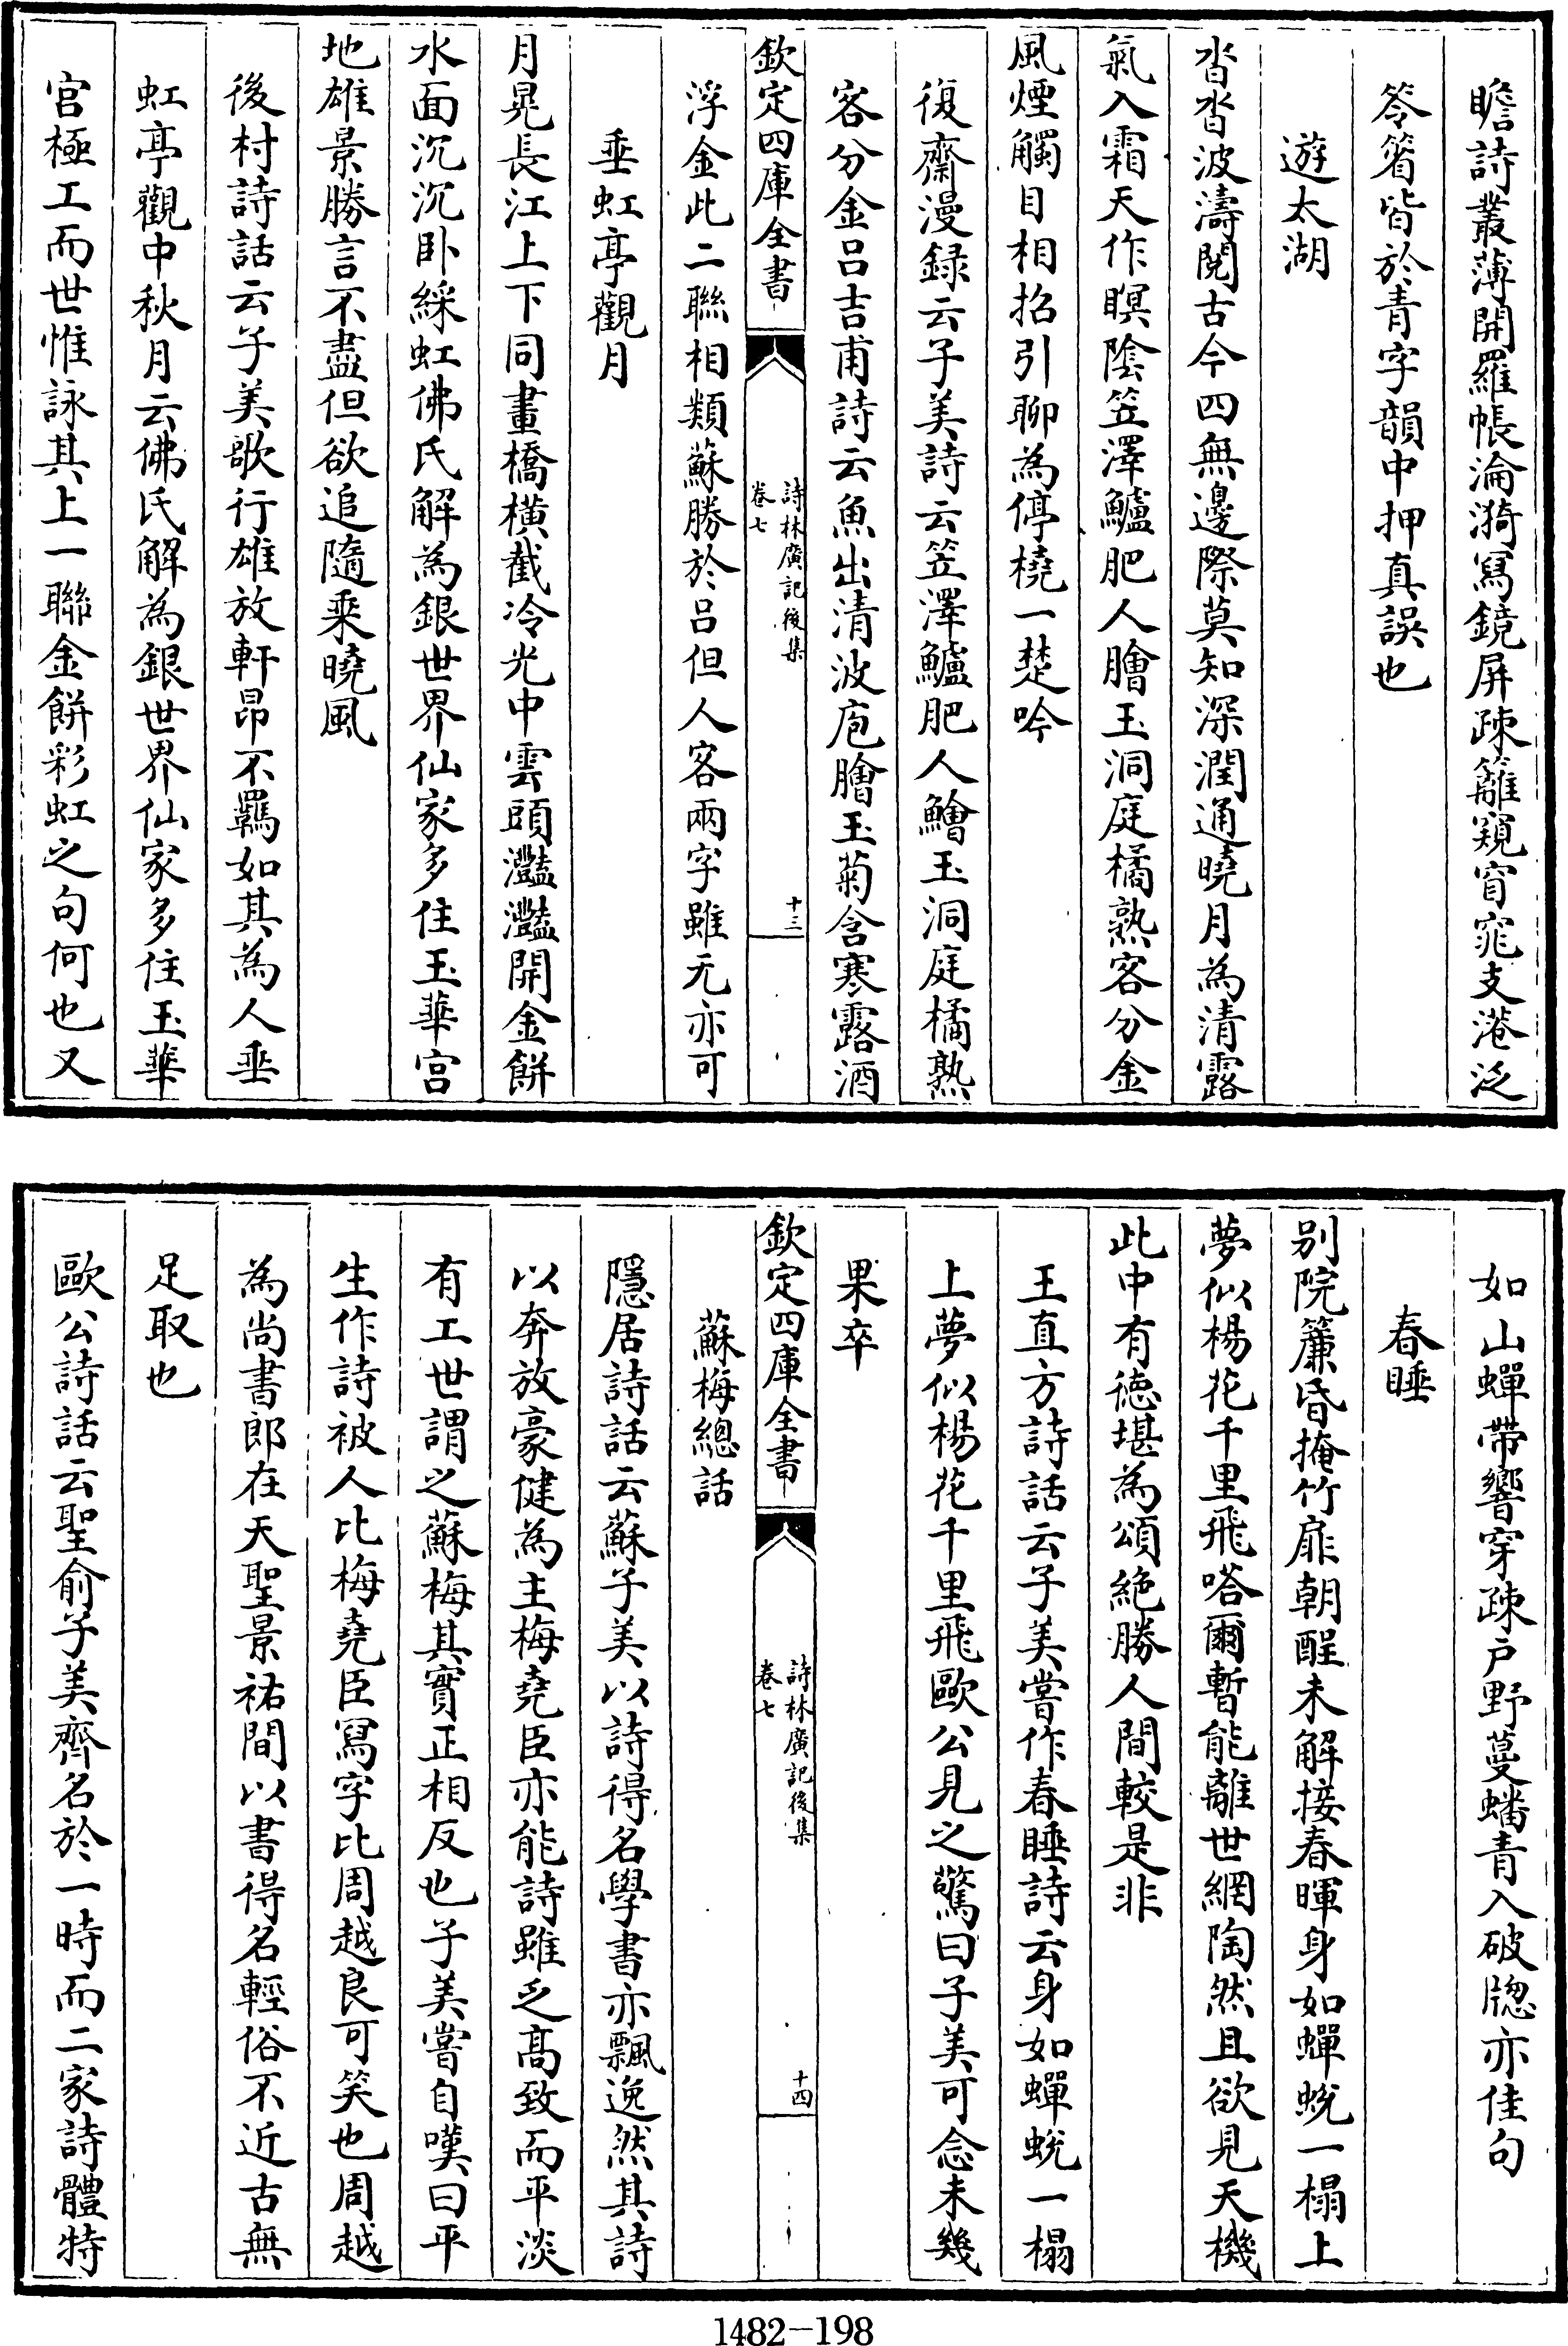 瞻詩叢薄開羅帳淪漪寫鏡屏疎籬窺窅窕支港泛
笭箵皆於青字韻中押真誤也
遊太湖
沓沓波濤閱古今四無邊際莫知深潤通曉月為清露
氣入霜天作暝陰笠澤鱸肥人膾玉洞庭橘熟客分金
風煙觸目相招引聊為停橈一楚吟
復齋漫録云子美詩云笠澤鱸肥人鱠玉洞庭橘熟
客分金吕吉甫詩云魚出清波庖膾玉菊含寒露酒
欽定四庫全書
詩林廣記後集
卷七
十三
浮金此二聯相類蘇勝於吕但人客兩字雖无亦可
垂虹亭觀月
月晃長江上下同畫橋橫截冷光中雲頭灩灩開金餅
水面沉沉卧綵虹佛氏解為銀世界仙家多住玉華宫
地雄景勝言不盡但欲追隨乗曉風
後村詩話云子美歌行雄放軒昂不羈如其為人垂
虹亭觀中秋月云佛氏解為銀世界仙家多住玉華
宫極工而世惟詠其上一聯金餅彩虹之句何也又
如山蟬帶響穿疎户野蔓蟠青入破牕亦佳句
春睡
别院簾昏掩竹扉朝酲未解接春暉身如蟬蛻一榻上
夢似楊花千里飛嗒爾暫能離世網陶然且欲見天機
此中有徳堪為頌絶勝人間較是非
王直方詩話云子美嘗作春睡詩云身如蟬蛻一榻
上夢似楊花千里飛歐公見之驚曰子美可念未幾
果卒
欽定四庫全書
詩林廣記後集
卷七
十四
蘇梅總話
隱居詩話云蘇子美以詩得名學書亦飄逸然其詩
以奔放豪健為主梅堯臣亦能詩雖乏髙致而平淡
有工世謂之蘇梅其實正相反也子美嘗自嘆曰平
生作詩被人比梅堯臣寫字比周越良可笑也周越
為尚書郎在天聖景祐間以書得名輕俗不近古無
足取也
歐公詩話云聖俞子美齊名於一時而二家詩體特
1482-198